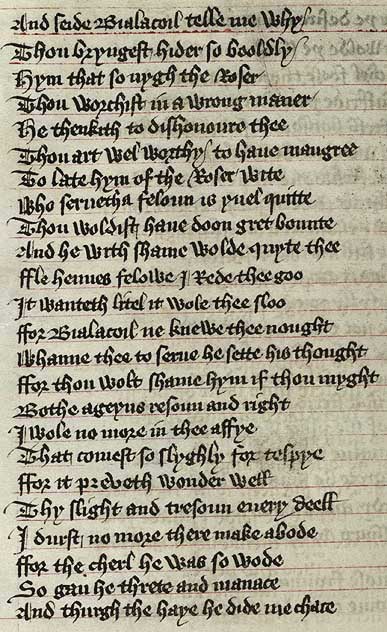 And seide Bialacoil telle me why
Thou bryngest hider so booldly
Hym that so nygh the Roser
Thou worchist in a wrong maner
He thenkith to dishonoure thee
Thou art wel worthy to haue maugree
To late hym of the Roser wite
Who serueth a feloun is yuel quitte
Thou woldist haue doon gret bounte
And he with shame wolde quyte thee
ffle hennes felowe I Rede thee goo
It wanteth litel it wole thee sloo
ffor Bialacoil ne knewe thee nought
Whanne thee to serue he sette his thought
ffor thou wolt shame hym if thou myght
Bothe ageyns resoun and right
I wole no more in thee affye
That comest so slyghly for tespye
ffor it preveth wonder well
Thy slight and tresoun euery deell
I durst no more there make abode
ffor the cherl he was so wode
So gan he threte and manace
And thurgh the haye he dide me chace